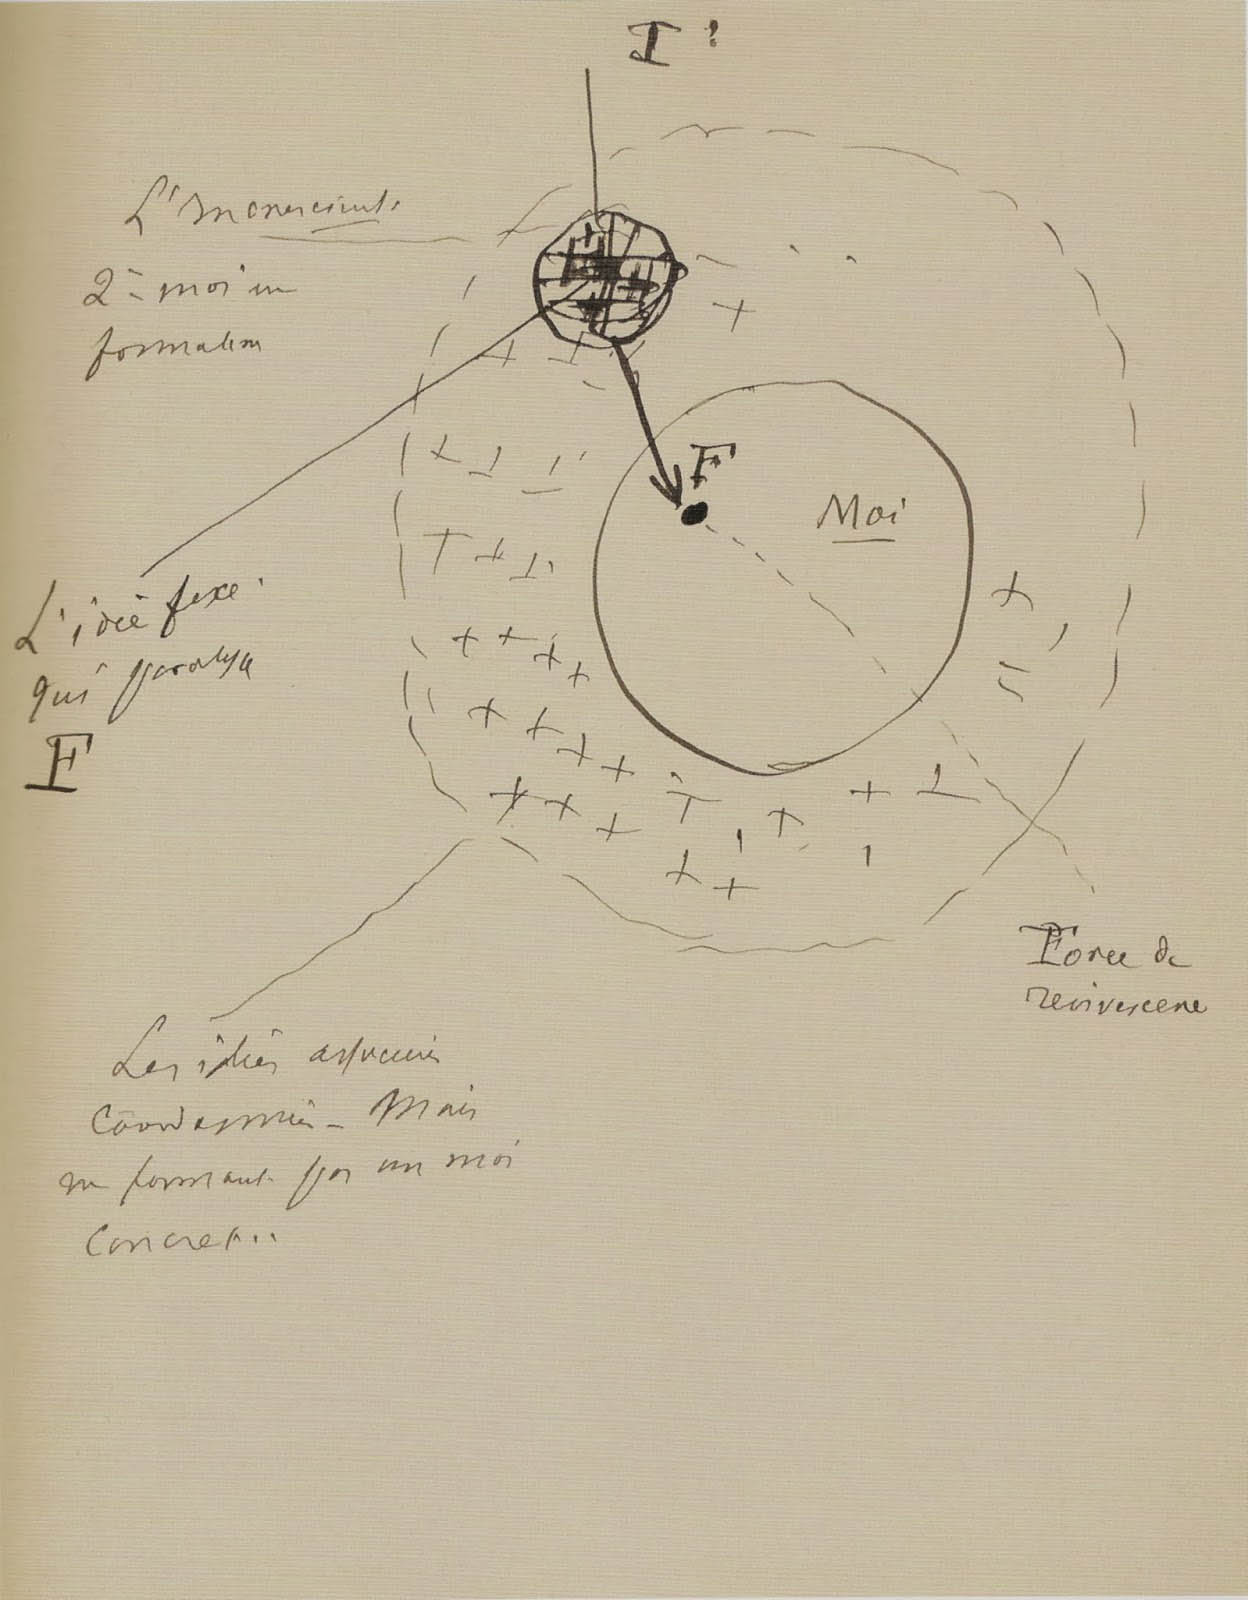 I
L'inconscient.
2e moi en
formation
F
Moi
L'idée fixe.
qui paralyse
F
Force de
reviviscence
Les idées associées
Coordonnées - Mais
ne formant pas un moi
Concret..